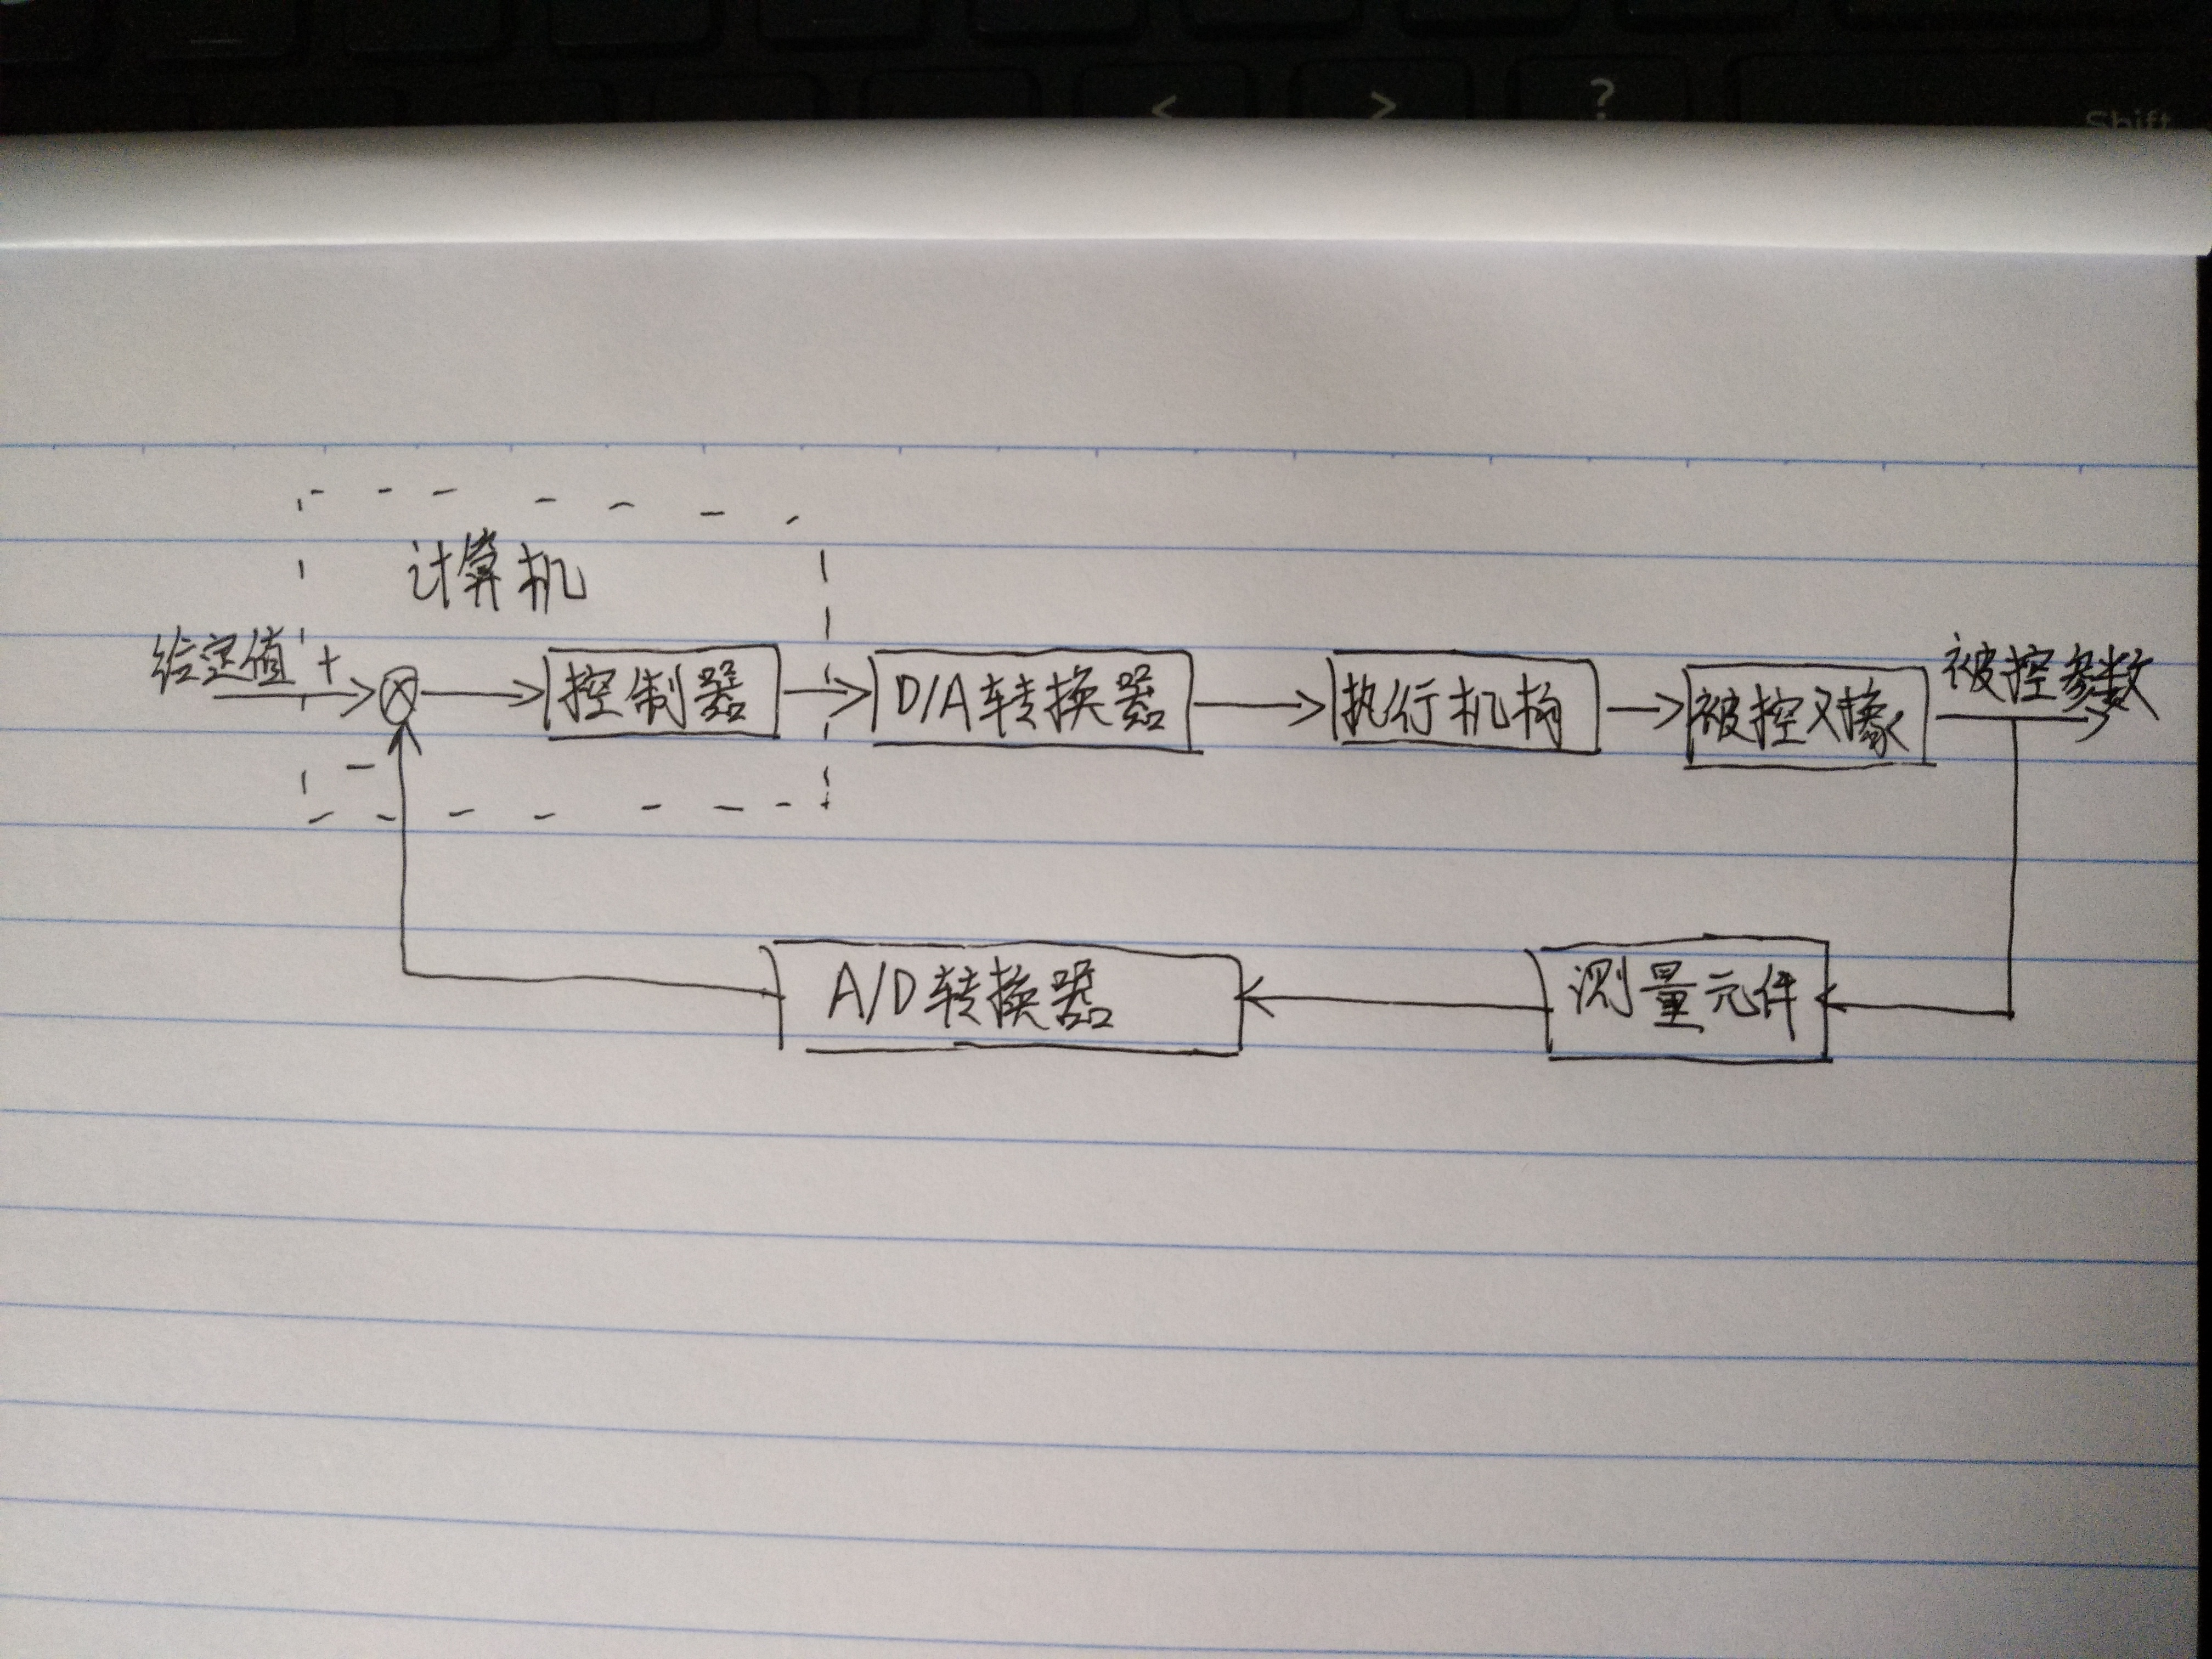 < > ?
Shift
计算机
给定值 +
控制器
D/A转换器
执行机构
被控对象
被控参数
-
A/D转换器
测量元件